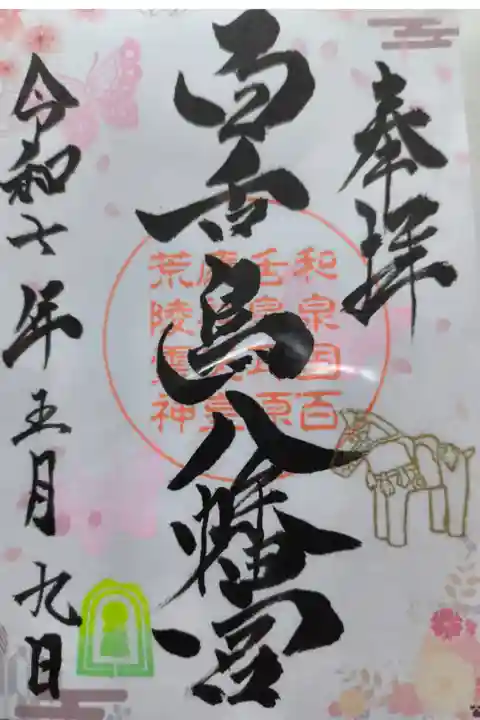 奉拝
百舌鳥八幡宮
和泉国百
荒陵霊神
令和七年五月九日